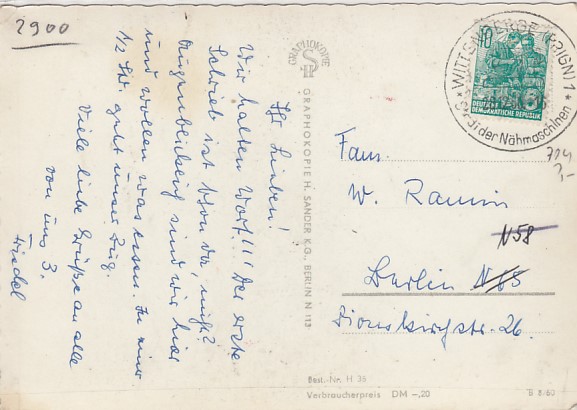 2900
Ihr Lieben!
Wir halten Wort!!! Der erste
Schrieb ist schon da, nicht?
Augenblicklich sind wir hier
und wollen was essen. In einer
1/2 Std. geht unser Zug.
Viele liebe Grüße an alle
von uns 3.
Friedel
GRAPHOKOPIE
GRAPHOKOPIE H. SANDER K.G., BERLIN N 113
10
DEUTSCHE
DEMOKRATISCHE REPUBLIK
WITTENBERGE (PRIGN) 1
der Nähmaschinen
Fam.
W. Ramin
N58
Berlin
Zionskirchstr. 26.
Best.-Nr. H 35
Verbraucherpreis DM -,20
B 8/60